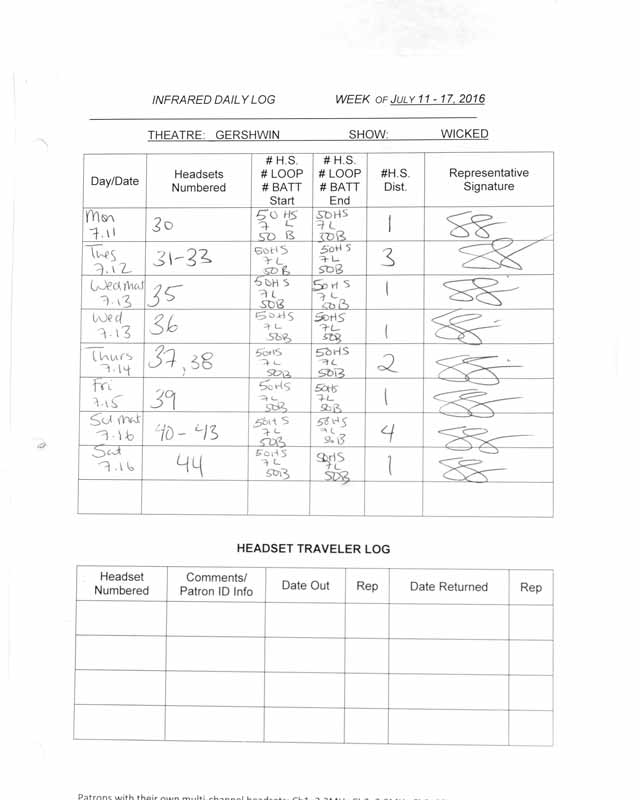 INFRARED DAILY LOG WEEK OF JULY 11 - 17, 2016
THEATRE: GERSHWIN SHOW: WICKED
Day/Date Headsets Numbered # H.S. # LOOP # BATT Start # H.S. # LOOP # BATT End #H.S. Dist. Representative Signature
Mon 7.11 30 50 HS 7 L 50 B 50HS 7L 50B 1
Tues 7.12 31-33 50HS 7L 50B 50HS 7L 50B 3
Wed mat 7.13 35 50HS 7L 50B 50HS 7L 50B 1
Wed 7.13 36 50HS 7L 50B 50HS 7L 50B 1
Thurs 7.14 37, 38 50HS 7L 50B 50HS 7L 50B 2
Fri 7.15 39 50HS 7L 50B 50HS 7L 50B 1
mat 7.16 40 - 43 50HS 7L 50B 50HS 7L 50B 4
Sat 7.16 44 50HS 7L 50B 50HS 7L 50B 1
HEADSET TRAVELER LOG
Headset Numbered Comments/ Patron ID Info Date Out Rep Date Returned Rep
Patrons with their own multi-channel headsets: